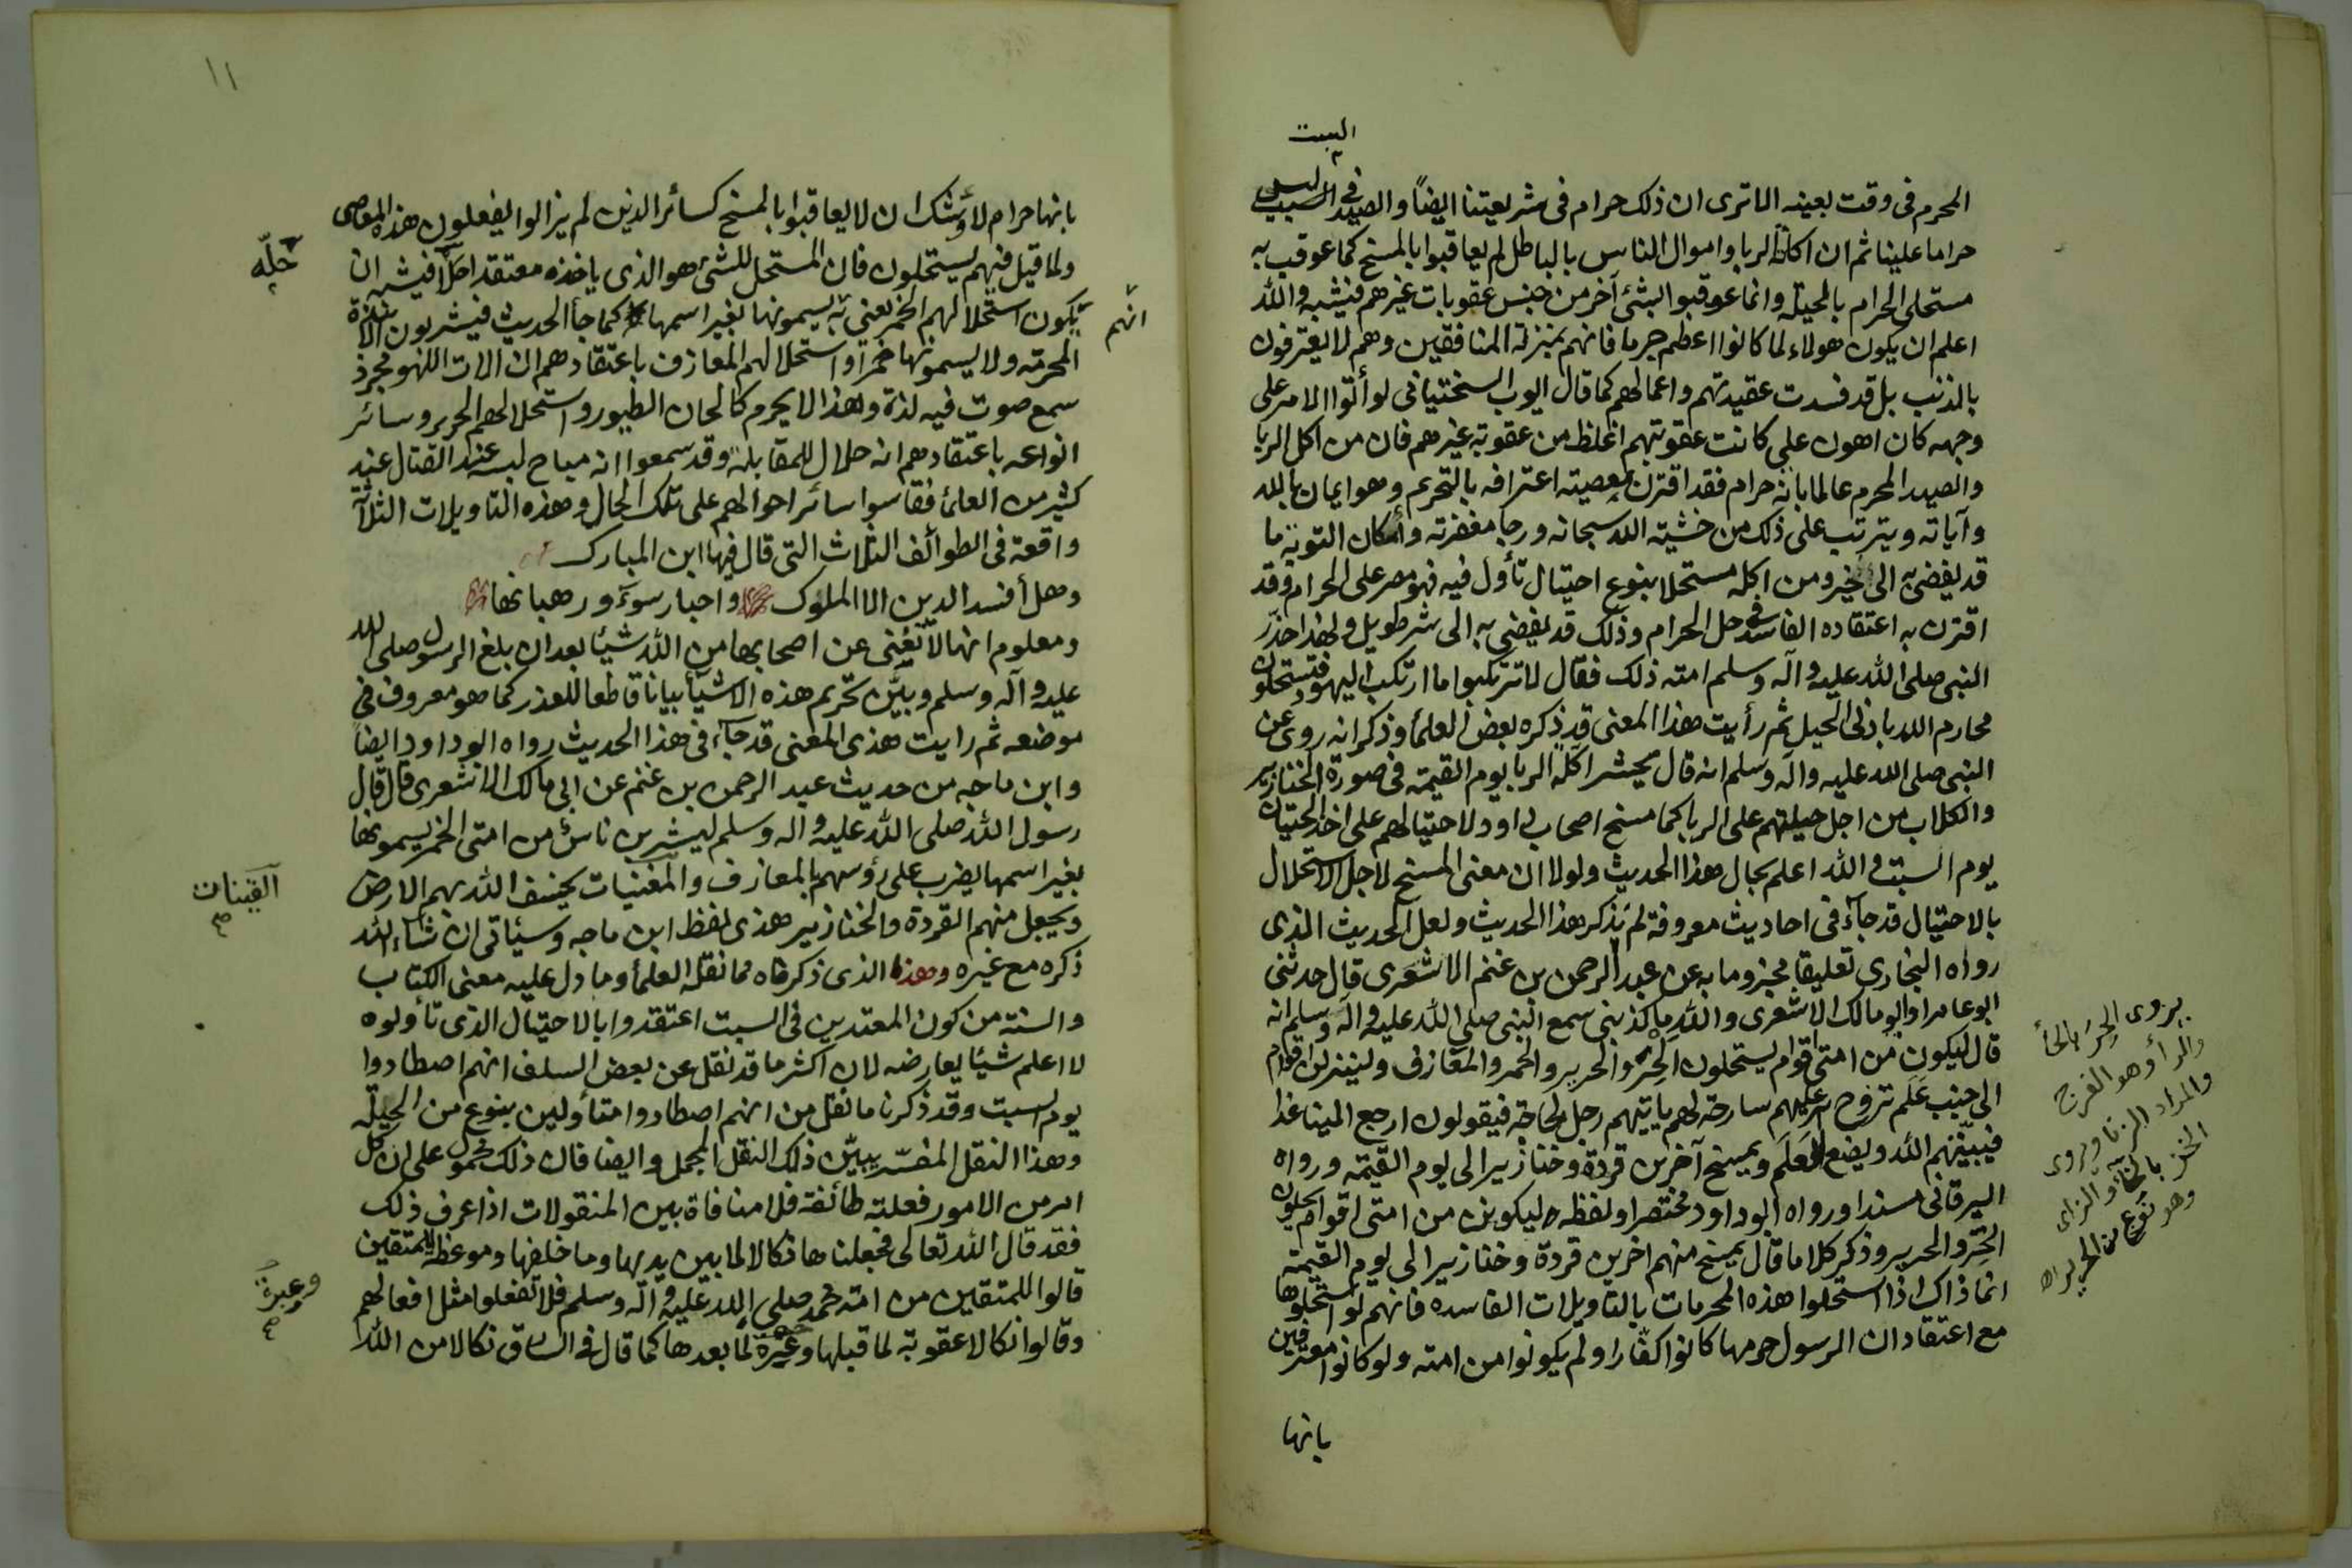 السبت
المحرم فى وقت بعينه الا ترى ان ذلك حرام فى شريعتنا ايضًا والصيد فى السبت ليس
حراما علينا ثم ان اكلة الربا واموال الناس بالباطل لم يعاقبوا بالمسخ كما عوقب به
مستحلى الحرام بالحيلة وانما عوقبوا بشئ آخر من جنس عقوبات غيرهم فيشبه والله
اعلم ان يكون هولاء لما كانوا اعظم جرما فانهم بمنزلة المنافقين وهم لا يعترفون
بالذنب بل قد فسدت عقيدتهم واعمالهم كما قال ايوب السختيانى لو أتوا الامر على
وجهه كان اهون على كانت عقوبتهم اغلظ من عقوبة غيرهم فان من اكل الربا
والصيد المحرم عالما بانه حرام فقد اقترن بمعصيته اعترافه بالتحريم وهو ايمان بالله
وآياته ويترتب على ذلك من خشية الله سبحانه ورجا مغفرته وأمكان التوبة ما
قد يفضى به الى خير ومن اكله مستحلا بنوع احتيال تأول فيه فهو مصر على الحرام وقد
اقترن به اعتقاده الفاسد فى حل الحرام وذلك قد يفضى به الى شر طويل ولهذا حذر
النبى صلى الله عليه وآله وسلم امته ذلك فقال لا ترتكبوا ما ارتكب اليهود فتستحلون
محارم الله بادنى الحيل ثم رأيت هذا المعنى قد ذكره بعض العلمأ وذكر انه روى عن
النبى صلى الله عليه وآله وسلم انه قال يحشر اكلة الربا يوم القيمة فى صورة الخنازير
والكلاب من اجل حيلتهم على الربا كما مسخ اصحاب داود لاحتيالهم على اخذ الحيتان
يوم السبت والله اعلم بحال هذا الحديث ولولا ان معنى المسخ لاجل الاستحلال
بالاحتيال قد جآء فى احاديث معروفة لم يذكر هذا الحديث ولعل الحديث الذى
رواه البخارى تعليقا مجزوما به عن عبد الرحمن بن غنم الاشعرى قال حدثنى
ابو عامر او ابو مالك الاشعرى والله ما كذبنى سمع النبى صلى الله عليه وآله وسلم انه
قال ليكونن من امتى اقوام يستحلون الحِرَ والحرير والخمر والمعازف ولينزلن اقوام
الى جنب عَلَم تروح عليهم سارحة لهم ياتيهم رجل لحاجة فيقولون ارجع الينا غدا
فيبيّتهم الله ويضع العَلَم ويمسخ آخرين قردة وخنازير الى يوم القيمة ورواه
البرقانى مسندا ورواه ابو داود مختصرا ولفظه ليكونن من امتى اقوام يستحلون
الخز والحرير وذكر كلاما قال يمسخ منهم اخرين قردة وخنازير الى يوم القيمة
انما ذاك اذا استحلوا هذه المحرمات بالتاويلات الفاسده فانهم لو استحلوها
مع اعتقاد ان الرسول حرمها كانوا كفّارا ولم يكونوا من امته ولو كانوا معترفين
بانها
يروى الحِرَ بالحأ
والرأ وهو الفرج
والمراد الزنا وروى
الخز بالخأ والزاى
وهو نوع من الحرير اه
١١
بانها حرام لأوشك ان لا يعاقبوا بالمسخ كسائر الذين لم يزالوا يفعلون هذه المعاصى
ولما قيل فيهم يستحلون فان المستحل للشئ هو الذى ياخذه معتقدا حله فيشبه ان
حلّه
يكون استحلالهم الخمر يعنى به يسمونها بغير اسمها كما جأ الحديث فيشربون الانبذة
انهم
المحرمة ولا يسمونها خمرا واستحلالهم المعازف باعتقادهم ان الات اللهو مجرد
سمع صوت فيه لذة وهذا لا يحرم كالحان الطيور واستحلالهم الحرير وسائر
انواعه باعتقادهم انه حلال للمقابلة وقد سمعوا انه مباح لبسه عند القتال عند
كثير من العلمأ فقاسوا سائر احوالهم على تلك الحال وهذه التاويلات الثلاثة
واقعة فى الطوائف الثلاث التى قال فيها ابن المبارك
وهل أفسد الدين الا الملوك واحبار سوء ورهبانها
ومعلوم انها لا تغنى عن اصحابها من الله شيئا بعد ان بلغ الرسول صلى الله
عليه وآله وسلم وبيّن تحريم هذه الاشيأ بيانا قاطعا للعذر كما هو معروف فى
موضعه ثم رايت هذى المعنى قد جآء فى هذا الحديث رواه ابو داود ايضا
وابن ماجه من حديث عبد الرحمن بن غنم عن ابى مالك الاشعرى قال قال
رسول الله صلى الله عليه وآله وسلم ليشربن ناس من امتى الخمر يسمونها
بغير اسمها يضرب على رؤسهم بالمعازف والمغنيات يخسف الله بهم الارض
القينات
ويجعل منهم القردة والخنازير هذى لفظ ابن ماجه وسيأتى ان شاء الله
ذكره مع غيره وهذا الذى ذكرناه مما نقله العلمأ وما دل عليه معنى الكتاب
والسنة من كون المعتدين فى السبت اعتقدوا بالاحتيال الذى تأولوه
لا اعلم شيئا يعارضه لان اكثر ما قد نقل عن بعض السلف انهم اصطادوا
يوم السبت وقد ذكرنا ما نقل من انهم اصطادوا متأولين بنوع من الحيلة
وهذا النقل المفسّر يبيّن ذلك النقل المجمل وايضا فان ذلك محمول على ان كل
امر من الامور فعلته طائفة فلا منافاة بين المنقولات اذا عرف ذلك
فقد قال الله تعالى فجعلناها نكالا لما بين يديها وما خلفها وموعظة للمتقين
قالوا للمتقين من امة محمد صلى الله عليه وآله وسلم فلا تفعلوا مثل افعالهم
وعبرة
وقالوا نكالا عقوبة لما قبلها وعبرة لما بعدها كما قال فى السارق نكالا من الله